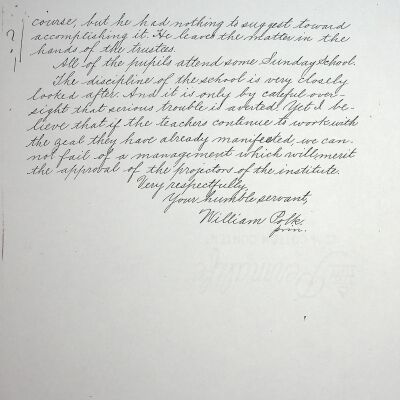 course, but he had nothing to suggest toward
accomplishing it. He leaves the matter in the
hands of the trustees.
All of the pupils attend some Sunday School.
The discipline of the school is very closely
looked after. And it is only by careful over-
sight that serious trouble is averted. Yet I be-
lieve that if the teachers continue to work with
the zeal they have already manifested, we can-
not fail of a management which will merit
the approval of the projectors of the institute.
Very respectfully,
Your humble servant,
William Polk.
prin.
?